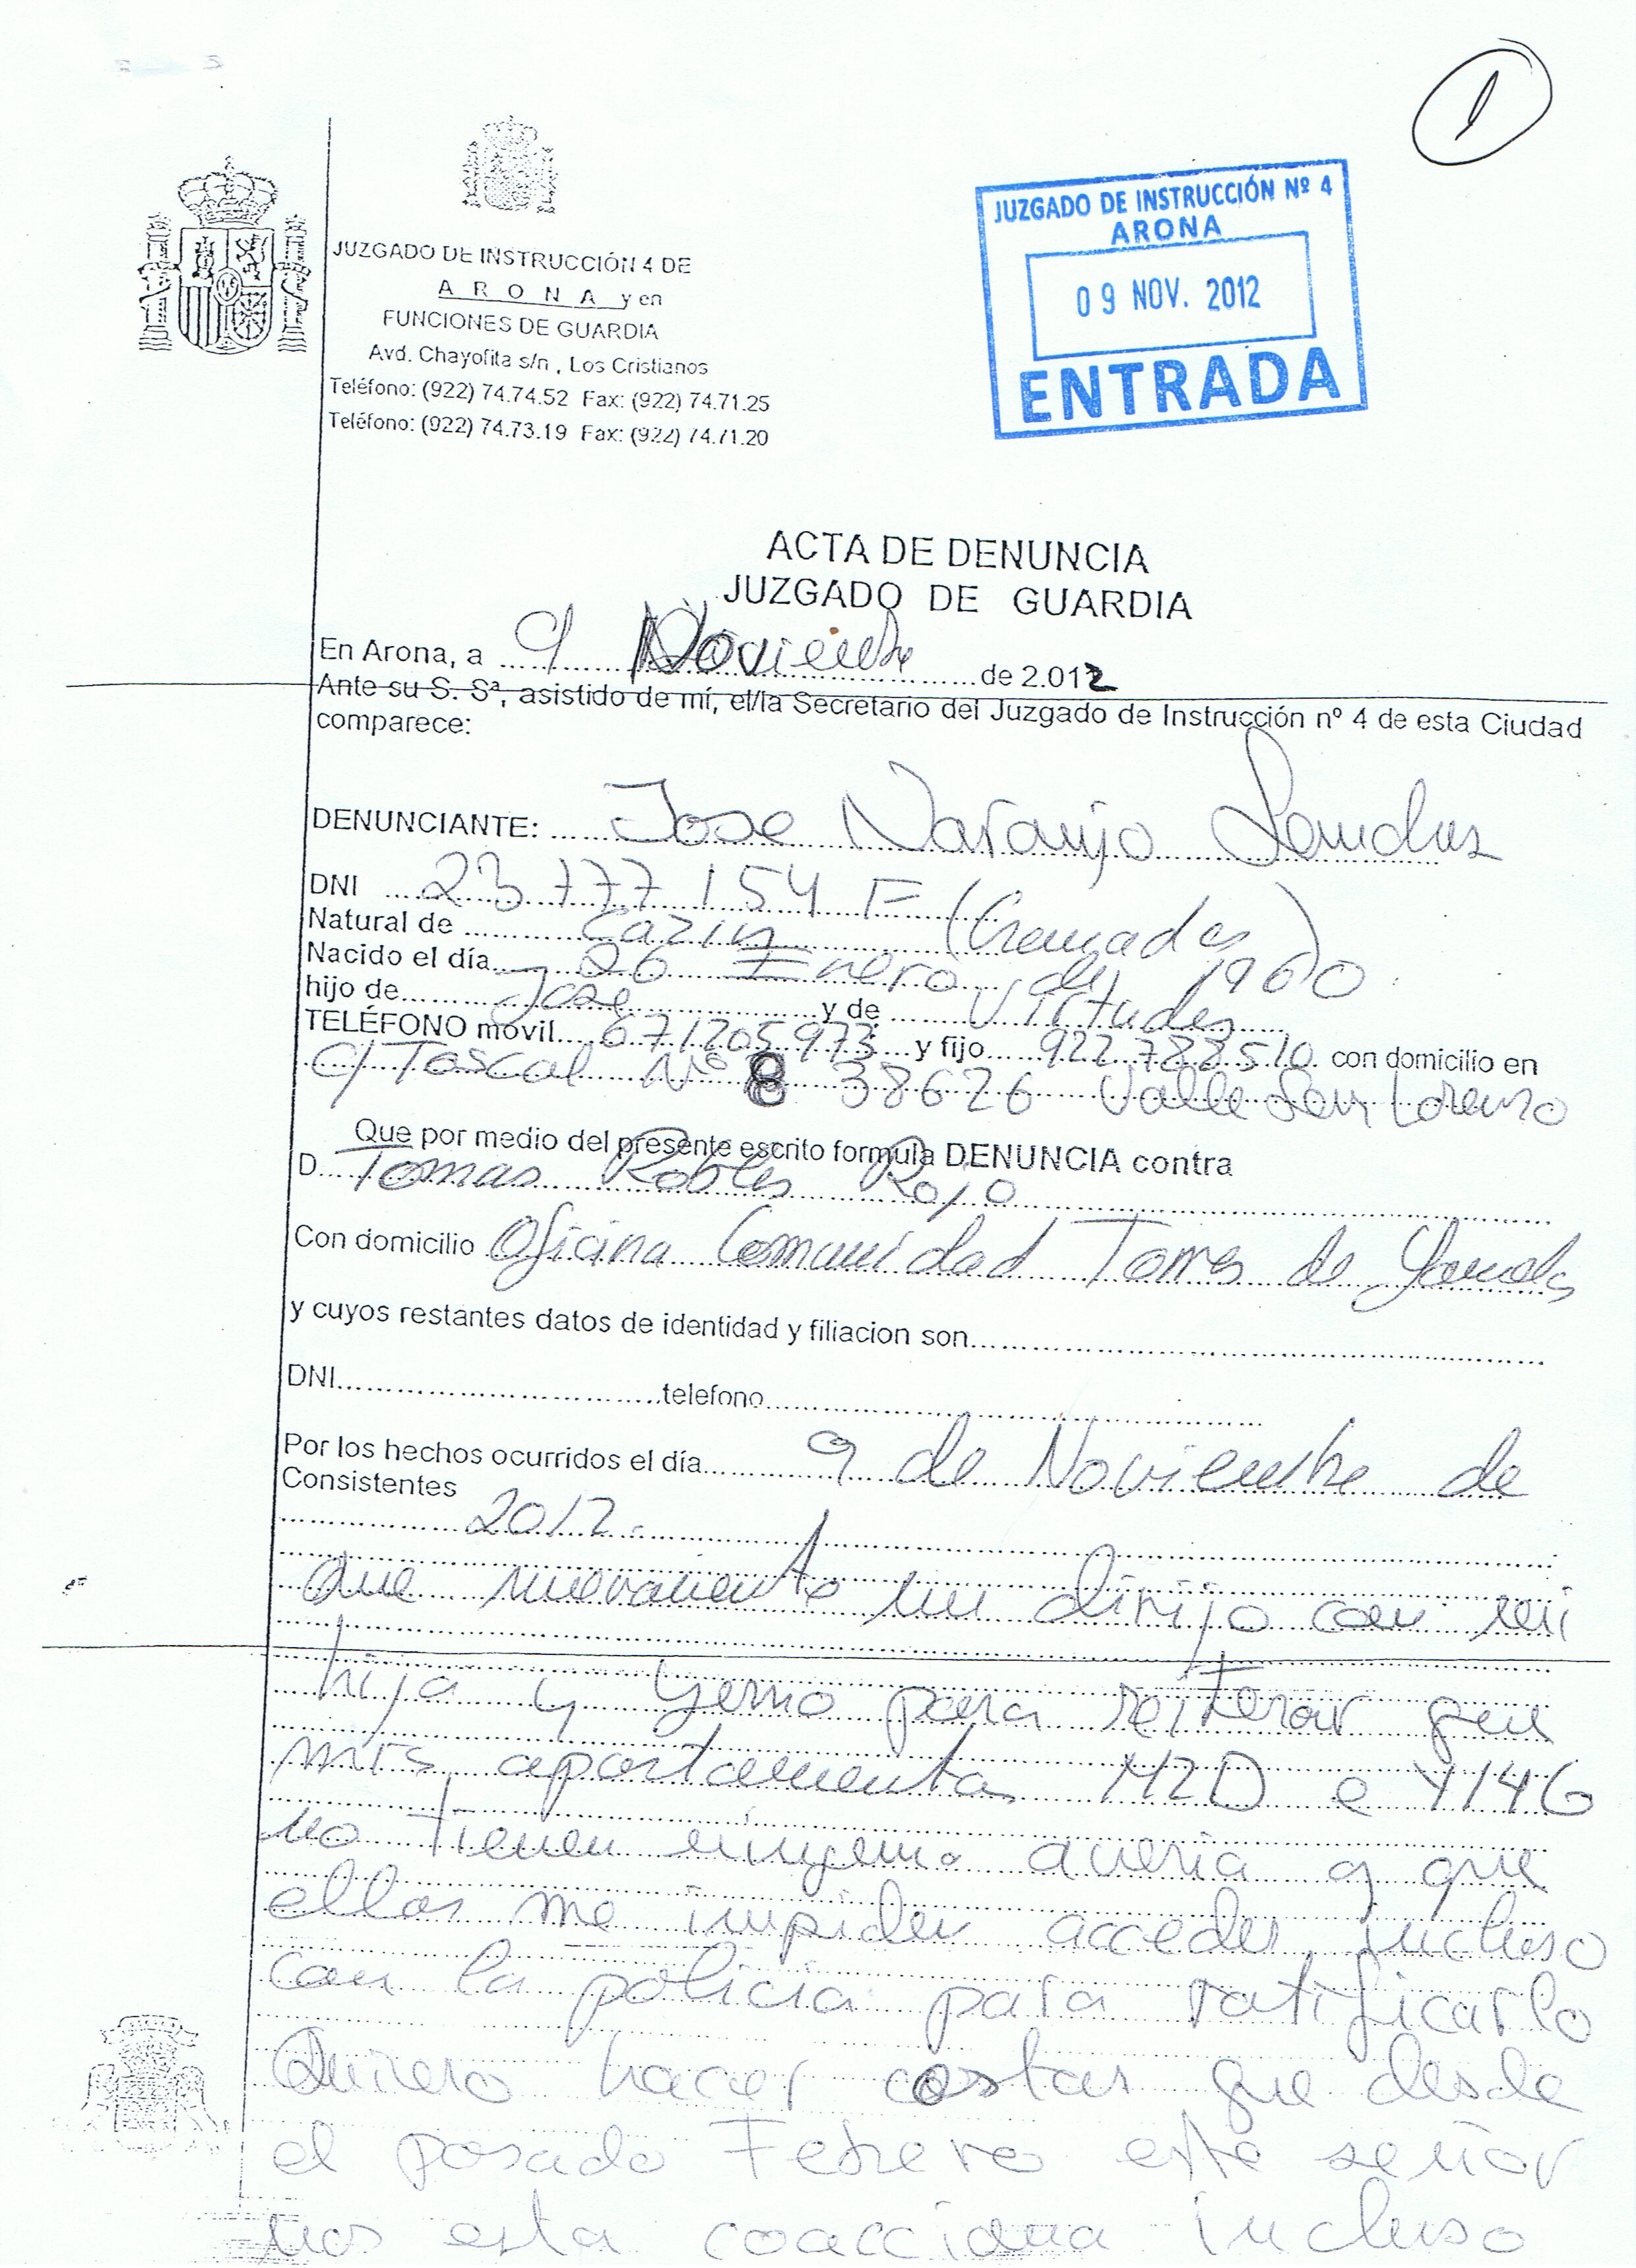 1
JUZGADO DE INSTRUCCIÓN Nº 4
ARONA
09 NOV. 2012
ENTRADA
JUZGADO DE INSTRUCCIÓN 4 DE
A R O N A y en
FUNCIONES DE GUARDIA
Avd. Chayofita s/n , Los Cristianos
Teléfono: (922) 74.74.52 Fax: (922) 74.71.25
Teléfono: (922) 74.73.19 Fax: (922) 74.71.20
ACTA DE DENUNCIA
JUZGADO DE GUARDIA
En Arona, a 9 Noviembre de 2.012
Ante su S. Sª, asistido de mí, el/la Secretario del Juzgado de Instrucción nº 4 de esta Ciudad
comparece:
DENUNCIANTE: Jose Naranjo
DNI 23777154 F
Natural de (Granada)
Nacido el día 26 Enero de 1960
hijo de Jose y de Virtudes
TELÉFONO móvil 671205973 y fijo 922788510 con domicilio en
C/ Toscal Nº 8 38626 Valle San Lorenzo
Que por medio del presente escrito formula DENUNCIA contra
D. Tomas Robles Rojo
Con domicilio Oficina Comunidad Torres de
y cuyos restantes datos de identidad y filiacion son
DNI telefono
Por los hechos ocurridos el día 9 de Noviembre de
Consistentes
2012.
Que nuevamente me dirijo con mi
hija y Yerno para reiterar que
mis apartamentos M2D e Y146
no tienen ninguna averia y que
ellos me impiden acceder incluso
con la policia para ratificarlo
Quiero hacer costar que desde
el pasado Febrero este señor
nos esta coacciona incluso